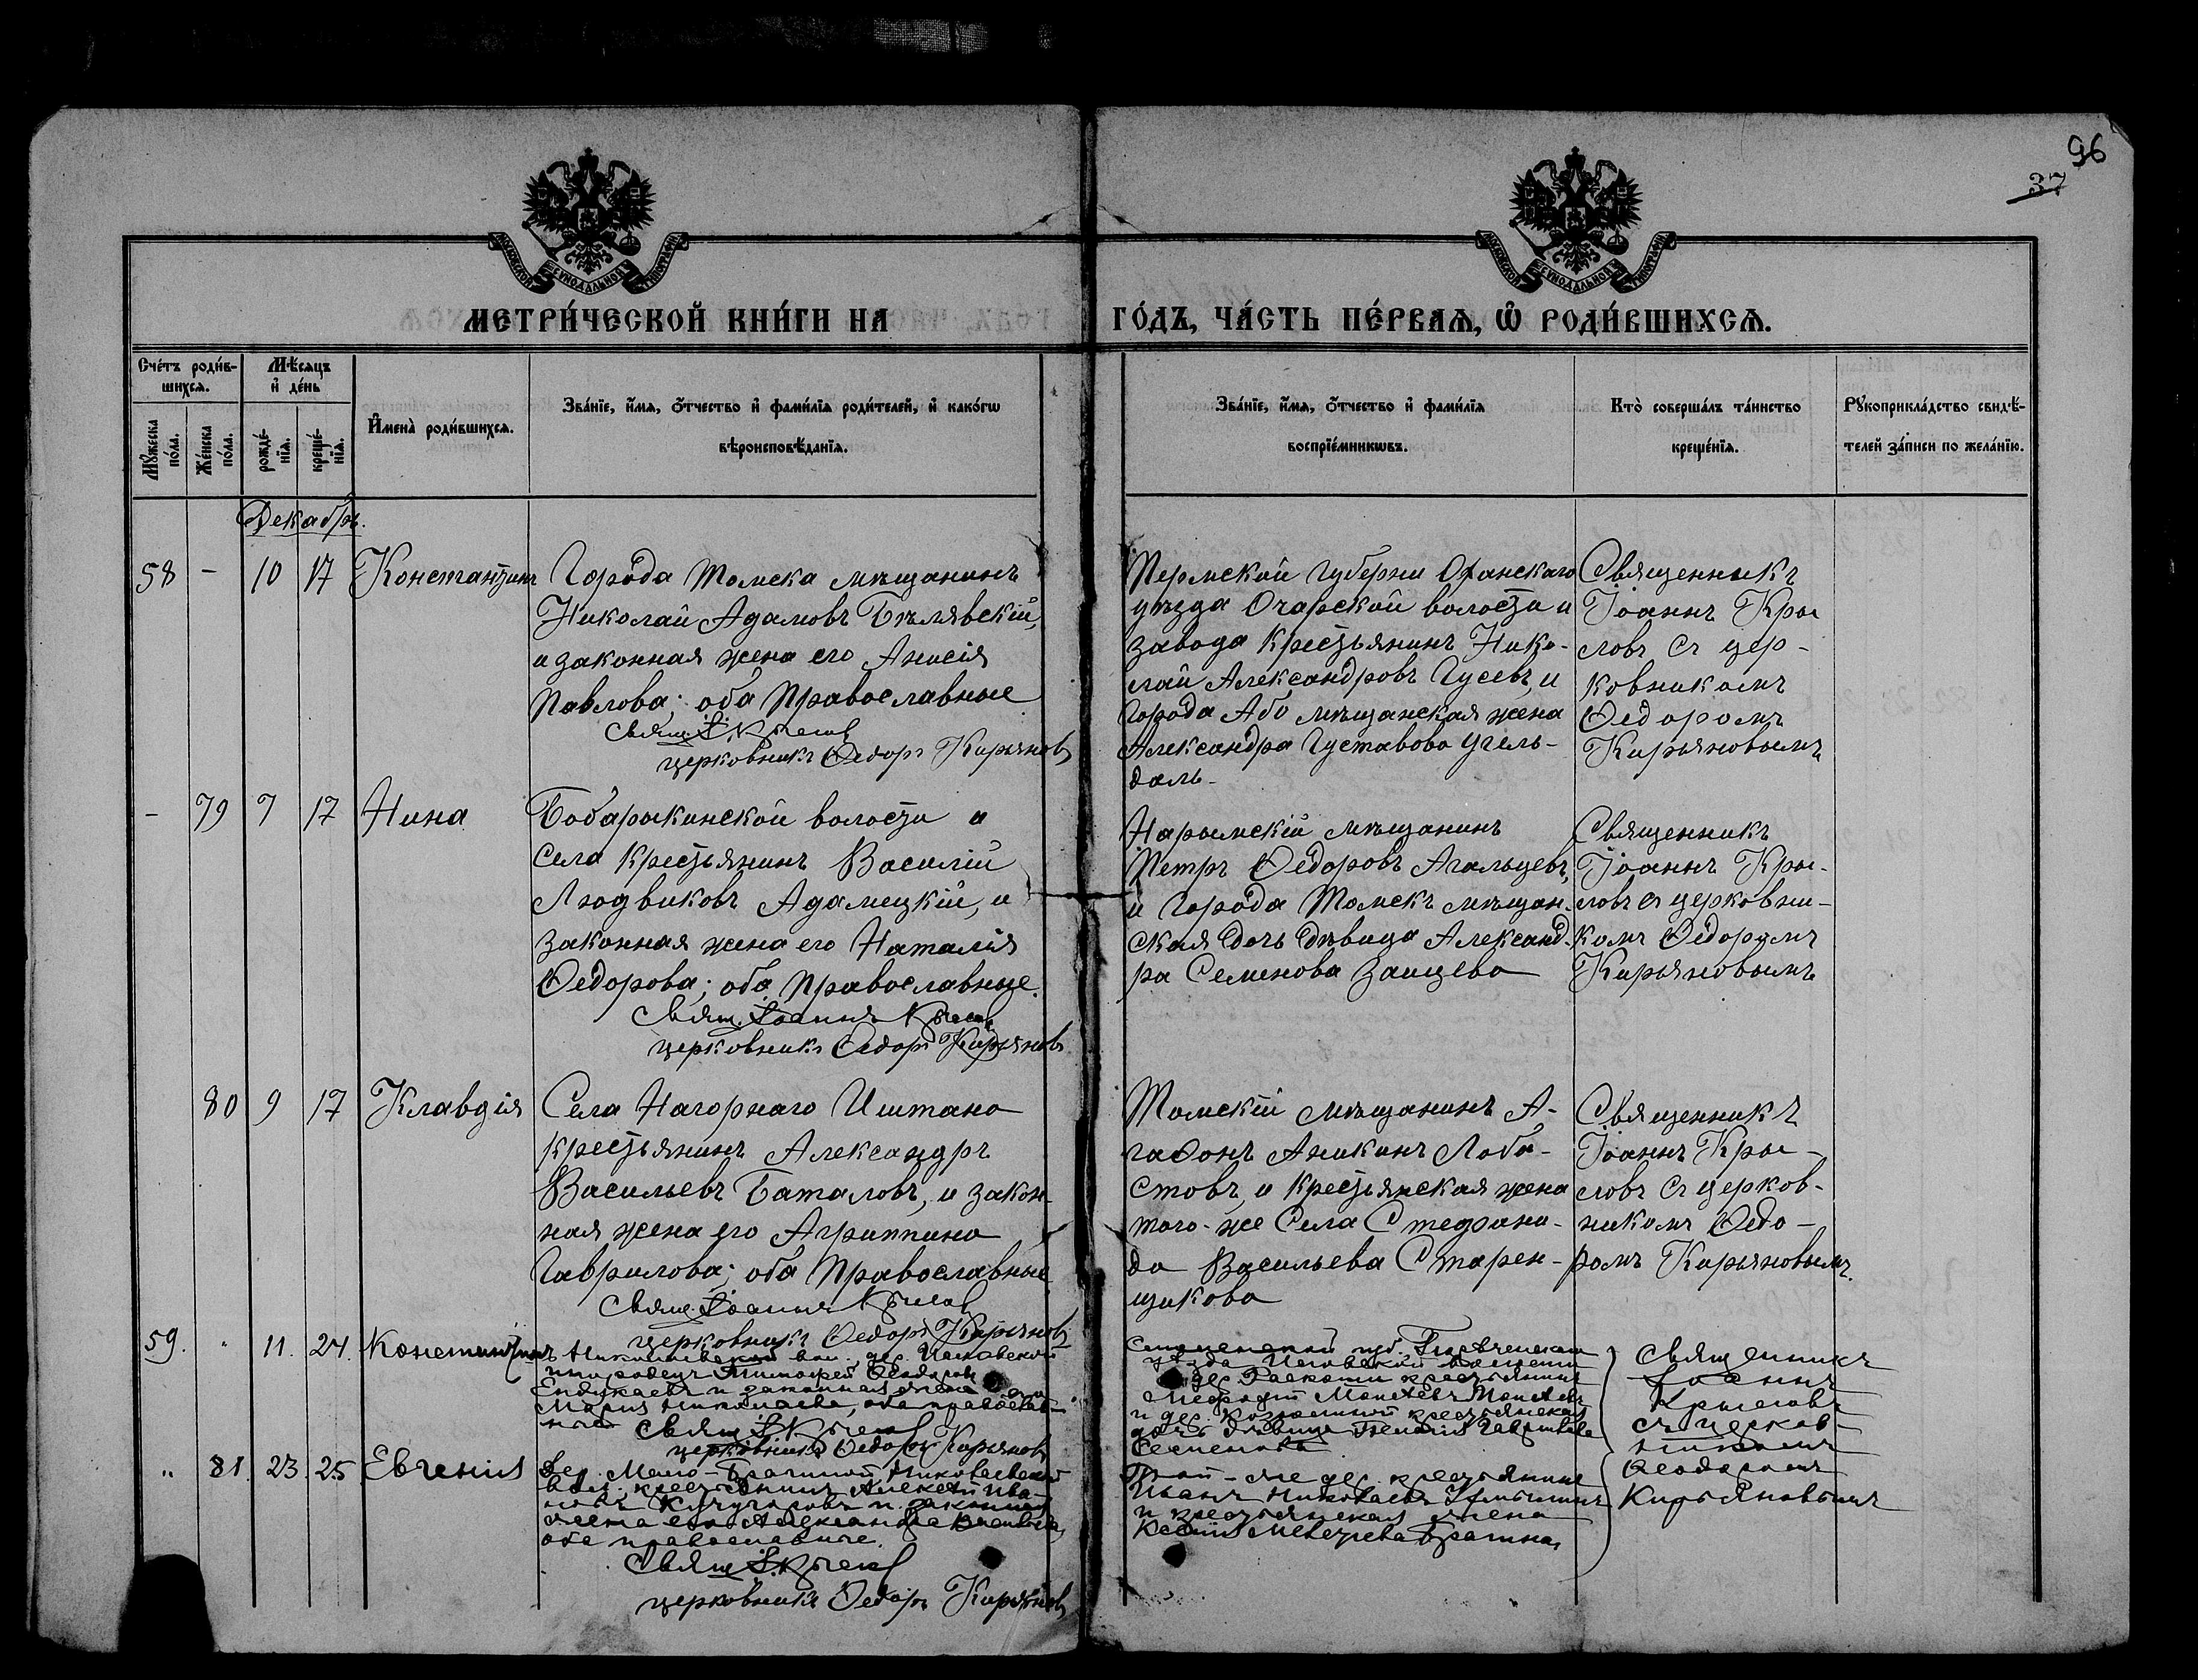 96
37
МОСКОВСКОЙ СѴНОДАЛЬНОЙ ТИПОГРАФІИ
МОСКОВСКОЙ СѴНОДАЛЬНОЙ ТИПОГРАФІИ
МЕТРИ́ЧЕСКОЙ КНИ́ГИ НА ГО́ДЪ, ЧА́СТЬ ПЕ́РВАѦ, Ѡ҆ РОДИ́ВШИХСѦ.
Сче́тъ роди́в-
шихсѧ.
Мѣ́сѧцъ
и҆ де́нь
Мꙋ́жеска по́ла.
Же́нска по́ла.
рожде́-
нїѧ.
креще́-
нїѧ.
И҆мена̀ роди́вшихсѧ.
Зва́нїе, и҆́мѧ, ѻ҆́тчество и҆ фами́лїѧ роди́телей, и҆ како́гѡ
вѣроисповѣ́данїѧ.
Зва́нїе, и҆́мѧ, ѻ҆́тчество и҆ фами́лїѧ
воспрїе́мникѡвъ.
Кто̀ соверша́лъ та́инство
креще́нїѧ.
Рꙋкоприкла́дство свидѣ́-
телей за́писи по жела́нїю.
Декабрь.
58 - 10 17 Константинъ
Города Томска мѣщанинъ
Николай Адамовъ Бѣлявскій,
и законная жена его Анисія
Павлова; оба Православные
Свящ. І. Крыловъ
церковникъ Ѳедоръ Кирьяновъ
Пермской Губерни Оханскаго
уѣзда Очарской волости и
завода Крестьянинъ Нико-
лай Александровъ Гусевъ, и
Города Або мѣщанская жена
Александра Густавова
даль-
Священникъ
Іоаннъ Кры
ловъ съ цер-
ковникомъ
Ѳедоромъ
Кирьяновымъ
- 79 7 17 Нина
Бабарыкинской волости и
села Крестьянинъ Василій
Людвиковъ Адамецкій, и
законная жена его Наталія
Ѳедорова; оба Православные.
Свящ. Іоаннъ Крыловъ
церковникъ Ѳедоръ Кирьяновъ
Нарымскій мѣщанинъ
Петръ Ѳедоровъ Агальцевъ,
и Города Томскъ мѣщан-
ская дочь дѣвица Александ-
ра Семенова Заицева
Священникъ
Іоаннъ Кры-
ловъ съ церковни-
комъ Ѳедоромъ
Кирьяновымъ
80 9 17 Клавдія
Села Нагорнаго Иштана
крестьянинъ Александръ
Васильевъ Баталовъ, и закон-
ная жена его Агриппина
Гаврилова; оба Православные
Свящ. Іоаннъ Крыловъ
церковникъ Ѳедоръ Кирьяновъ
Томскій мѣщанинъ А-
гафонъ Аникинъ Лоба-
стовъ, и Крестьянская жена
того-же Села Стефани-
да Васильева Старен-
щикова
Священникъ
Іоаннъ Кры-
ловъ съ церков-
никомъ Ѳедо-
ромъ Кирьяновымъ.
59. " 11. 24. Константинъ
вол. дер.
инородецъ Тимофей Ѳеодоровъ
и законная жена его
Марія Николаева, оба православ-
ные
Свящ. І. Крыловъ
церковникъ Ѳедоръ Кирьяновъ
губ.
уѣзда волости
дер. крестьянинъ
и дер. крестьянская
дочь дѣвица Гаврилова
Семенова
Священникъ
Іоаннъ
Крыловъ
съ церков-
никомъ
Ѳеодоромъ
Кирьяновымъ
" 81. 23. 25. Евгенія
Дер. Мало-Брагиной Николаевской
вол., крестьянинъ Алексѣй Ива-
новъ и законная
жена его Александра
оба православные.
Свящ. І. Крыловъ
церковникъ Ѳедоръ Кирьяновъ
Той-же дер. крестьянинъ
Иванъ Николаевъ
и крестьянская жена
Брагина